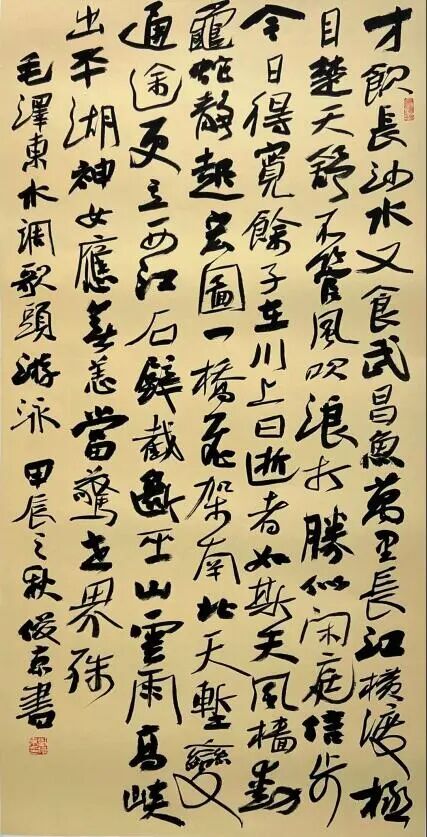 才飲長沙水又食武昌魚萬里長江橫渡極
目楚天舒不管風吹浪打勝似閑庭信步
今日得寬餘子在川上曰逝者如斯夫風檣動
龜蛇靜起宏圖一橋飛架南北天塹變
通途更立西江石壁截斷巫山雲雨高峽
出平湖神女應無恙當驚世界殊
毛澤東水調歌頭游泳 甲辰之秋俊京書